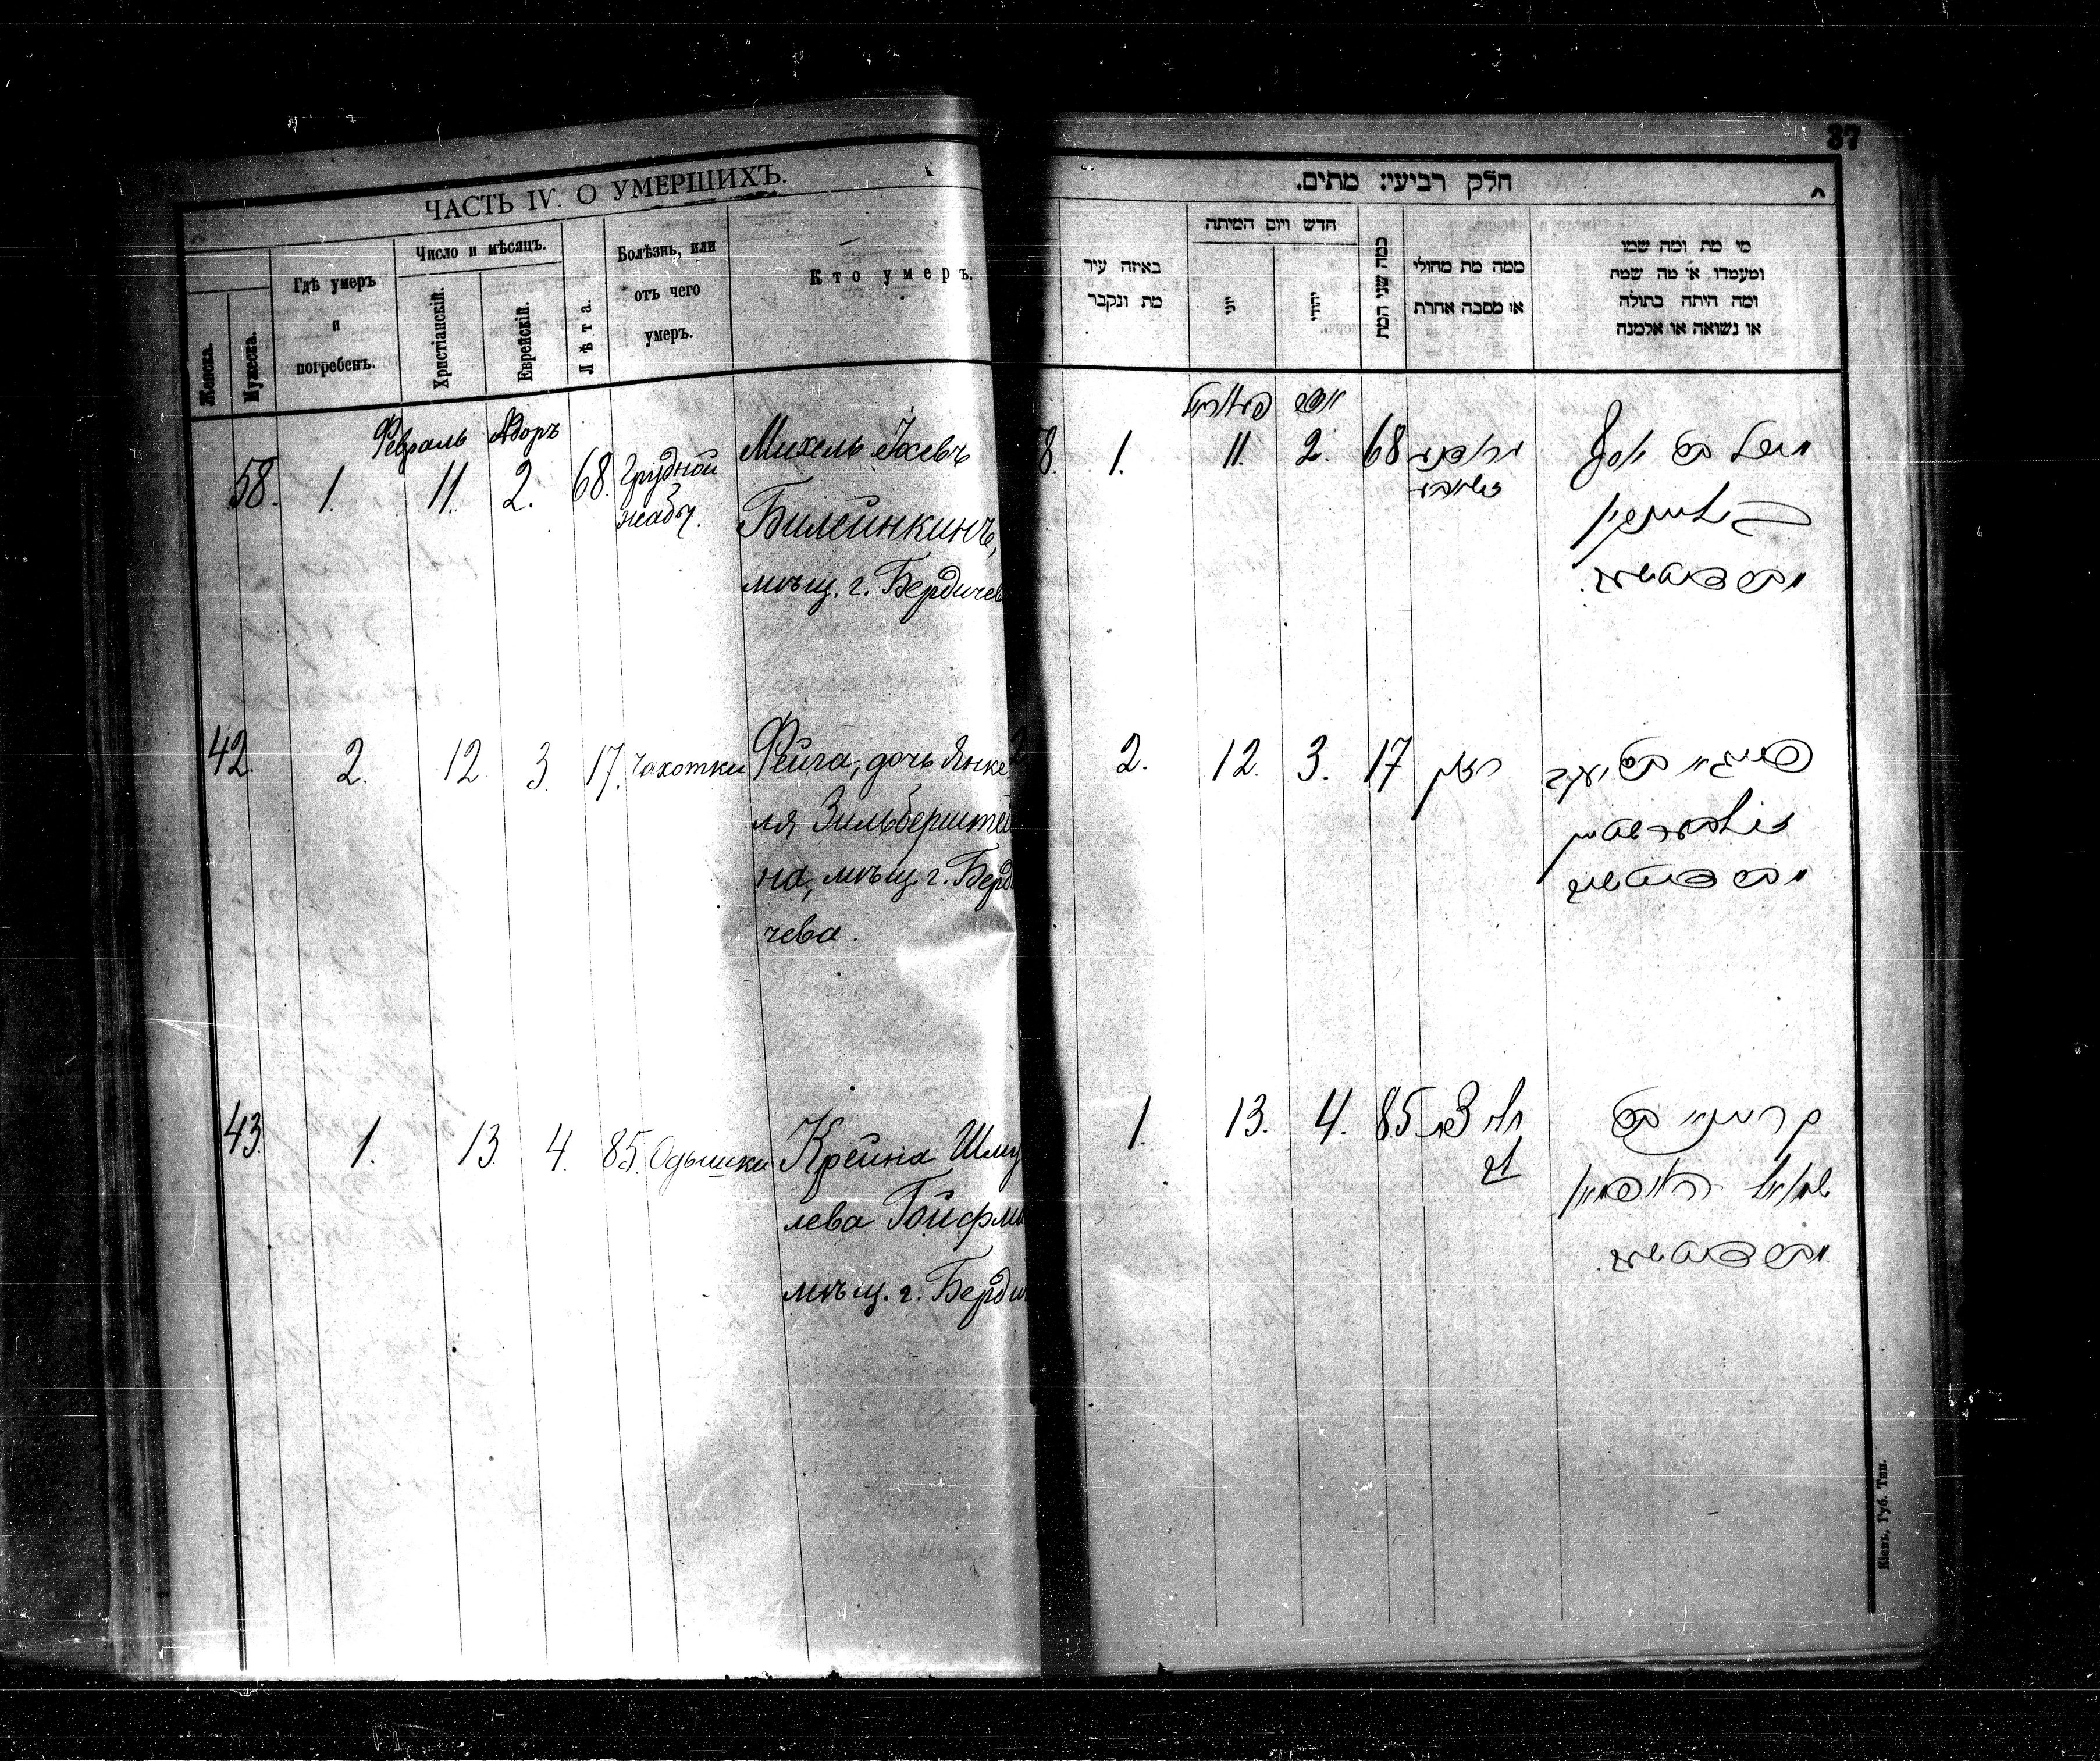 ЧАСТЬ IV. О УМЕРШИХЪ.
Женска.
Мужеска.
Гдѣ умеръ
и
погребенъ.
Число и мѣсяцъ.
Христіанскій.
Еврейскій.
Лѣта.
Болѣзнь, или
отъ чего
умеръ.
Кто умеръ.
Февраль Адоръ
58. 1. 11. 2. 68. Грудной
жабы.
Михель
Билейнкинъ,
мѣщ. г. Бердичев
42. 2. 12. 3. 17. Чахотки Фейга, дочь Янке
ля Зильберштей
на, мѣщ. г. Берди
чева.
43. 1. 13. 4. 85. Одышки Крейна Шму
лева Гойфма
мѣщ. г. Бердич
37
חלק רביעי: מתים.
באיזה עיר
מת ונקבר
חדש ויום המיתה
יוני
יהודי
כמה שני המת
ממה מת מחולי
או מסבה אחרת
מי מת ומה שמו
ומעמדו או מה שמה
ומה היתה בתולה
או נשואה או אלמנה
פעווראל אדר
8. 1. 11. 2. 68
2. 12. 3. 17 פייגא בת יעקב
זילבערשטיין
1. 13. 4. 85 קריינא בת
שמואל הויפמאן
Кіевъ, Губ. Тип.